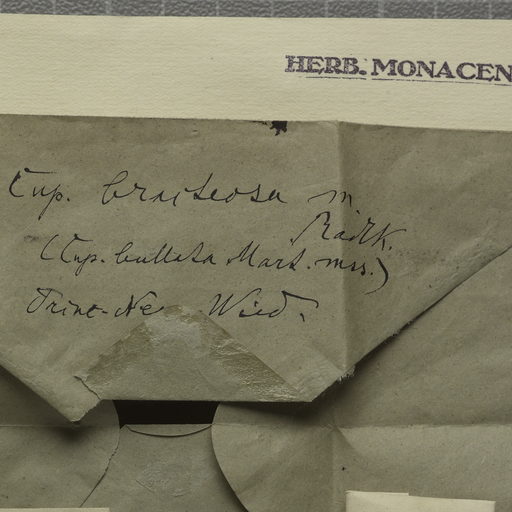 HERB. MONACEN
Cup. bracteosa m.
Radlk.
(Cup. bullata Mart. mss.)
Princ. Ne Wied.